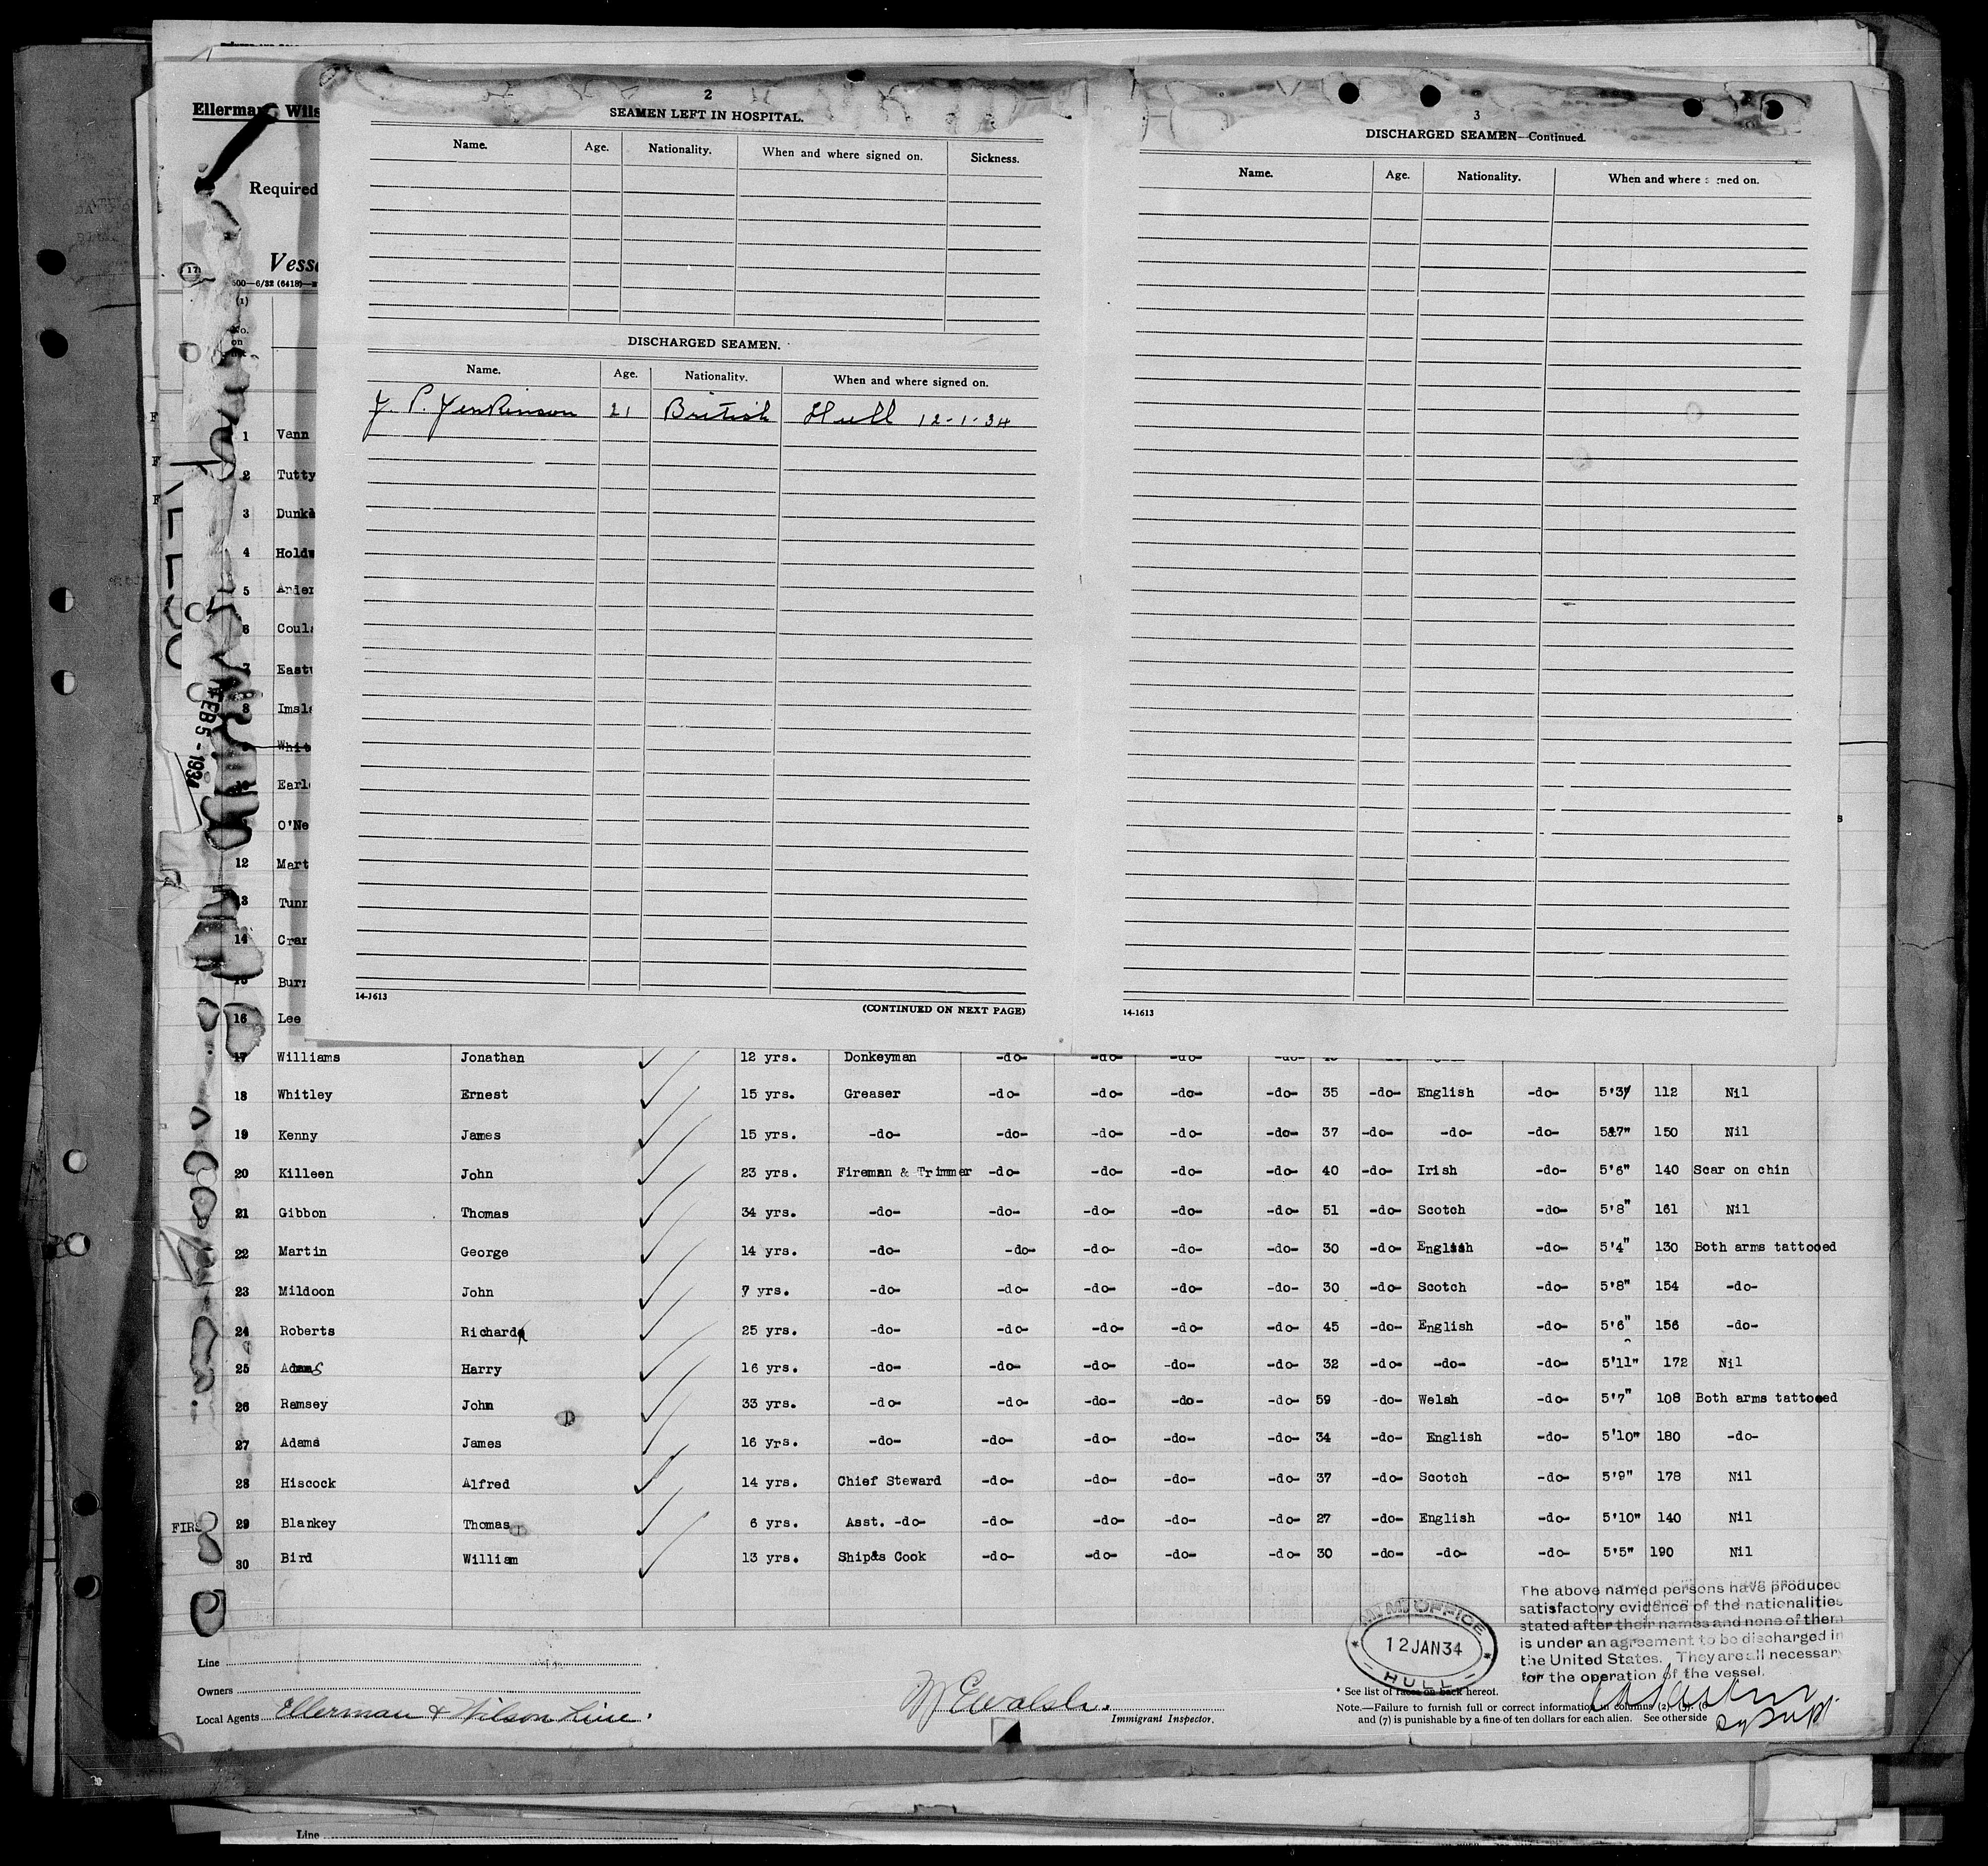 Ellerman's Wils
Required
Vess
500—6/32 (6418)—
(1)
No.
on
2
SEAMEN LEFT IN HOSPITAL.
Name. Age. Nationality. When and where signed on. Sickness.
DISCHARGED SEAMEN.
Name. Age. Nationality. When and where signed on.
J. P. Jenkinson 21 British Hull 12-1-34
14-1613
(CONTINUED ON NEXT PAGE)
3
DISCHARGED SEAMEN—Continued.
Name. Age. Nationality. When and where signed on.
14-1613
FEB 5 - 1934
1 Vann
2 Tutty
3 Dunk
4 Holdw
5 Ander
6 Coul
7 East
8 Imsl
Whit
10 Earl
O'Ne
12 Mart
13 Tunn
14 Cran
15 Burn
16 Lee
17 Williams Jonathan 12 yrs. Donkeyman -do- -do- -do- -do-
18 Whitley Ernest 15 yrs. Greaser -do- -do- -do- -do- 35 -do- English -do- 5'3" 112 Nil
19 Kenny James 15 yrs. -do- -do- -do- -do- -do- 37 -do- -do- -do- 5'7" 150 Nil
20 Killeen John 23 yrs. Fireman & Trimmer -do- -do- -do- -do- 40 -do- Irish -do- 5'6" 140 Scar on chin
21 Gibbon Thomas 34 yrs. -do- -do- -do- -do- -do- 51 -do- Scotch -do- 5'8" 161 Nil
22 Martin George 14 yrs. -do- -do- -do- -do- -do- 30 -do- English -do- 5'4" 130 Both arms tattooed
23 Mildoon John 7 yrs. -do- -do- -do- -do- -do- 30 -do- Scotch -do- 5'8" 154 -do-
24 Roberts Richard 25 yrs. -do- -do- -do- -do- -do- 45 -do- English -do- 5'6" 156 -do-
25 Adams Harry 16 yrs. -do- -do- -do- -do- -do- 32 -do- -do- -do- 5'11" 172 Nil
26 Ramsey John 33 yrs. -do- -do- -do- -do- -do- 59 -do- Welsh -do- 5'7" 108 Both arms tattooed
27 Adams James 16 yrs. -do- -do- -do- -do- -do- 34 -do- English -do- 5'10" 180 -do-
28 Hiscock Alfred 14 yrs. Chief Steward -do- -do- -do- -do- 37 -do- Scotch -do- 5'9" 178 Nil
FIRS 29 Blankey Thomas 6 yrs. Asst. -do- -do- -do- -do- -do- 27 -do- English -do- 5'10" 140 Nil
30 Bird William 13 yrs. Ship's Cook -do- -do- -do- -do- 30 -do- -do- -do- 5'5" 190 Nil
The above named persons have produced
satisfactory evidence of the nationalities
stated after their names and none of them
is under an agreement to be discharged in
the United States. They are all necessary
for the operation of the vessel.
M.M. OFFICE
12 JAN 34
HULL
Line
Owners
Local Agents Ellerman & Wilson Line.
M E Walsh.
Immigrant Inspector.
* See list of races on back hereof.
Note.—Failure to furnish full or correct information in columns (2), (5), (6
and (7) is punishable by a fine of ten dollars for each alien. See other side
Line